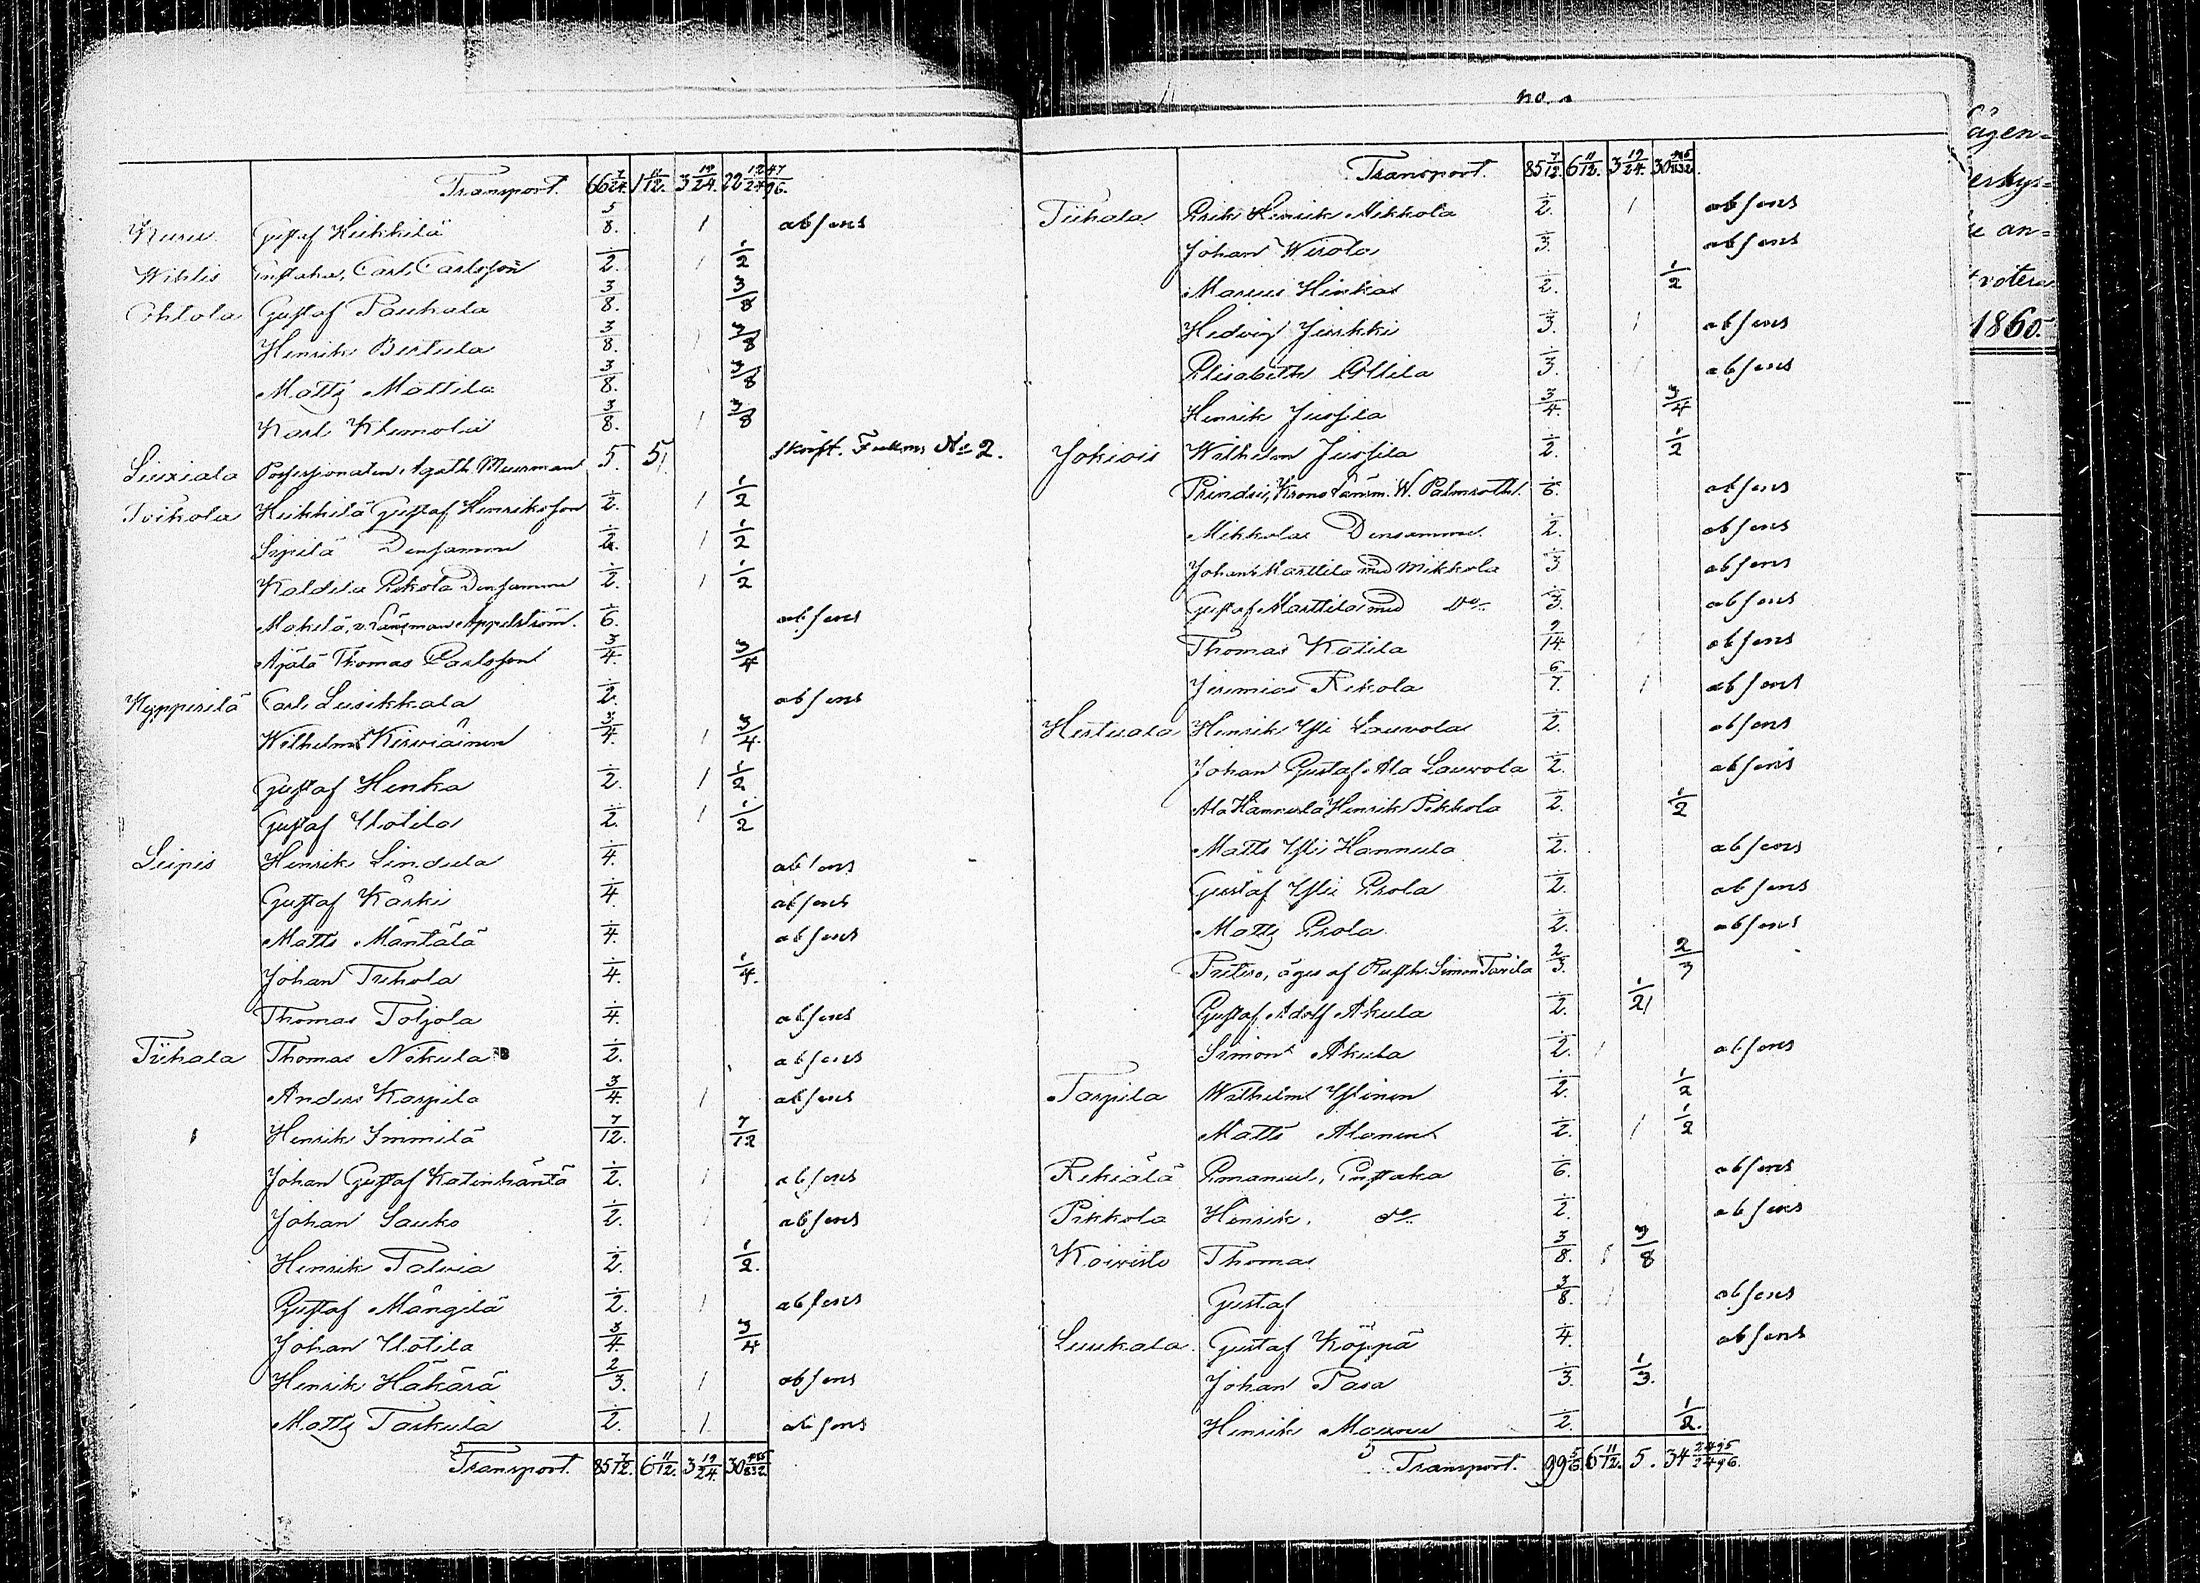 Transport. 66 7/24. 1 11/12. 3 19/24. 22
Kuru. Gustaf Heikkilä 5/8. 1 absens
Wihlis Enkstaka, Carl Carlsson 1/2. 1 1/2
Ohtola Gustaf Paukala 3/8. 3/8
Henrik Bertula 3/8. 1 3/8
Matts Mattila 3/8. 3/8
Karl Klemola 3/8. 1 3/8
Liuxiala Possessionaten Agath. Muurman 5. 5 skrift. Fullm. No 2.
Toikola Heikkilä Gustaf Henriksson 1/2. 1 1/2
Sipilä Densamme 1/2. 1 1/2
Kaldila Rekola Densamme 1/2. 1 1/2
Mäkelä, v. Länsman Appelström. 1/6. absens
Äijälä Thomas Carlsson 3/4. 3/4
Kypperilä Carl Luukkala 1/2. absens
Wilhelm Kirwiäinen 3/4. 1 3/4.
Gustaf Henka 1/2. 1 1/2
Gustaf Uotila 1/2. 1 1/2
Liipis Henrik Lindula 1/4. absens
Gustaf Kärki 1/4. absens
Matts Mäntälä 1/4. absens
Johan Tuhola 1/4. 1/4.
Thomas Toljola 1/4. absens
Tiihala Thomas Nikula 1/2. absens
Anders Karpila 3/4. 1 absens
Henrik Immilä 7/12. 7/12
Johan Gustaf Katinhäntä 1/2. 1 absens
Johan Sauko 1/2. 1 absens
Henrik Talvia 1/2. 1/2.
Gustaf Mängilä 1/2. 1 absens
Johan Uotila 3/4. 3/4
Henrik Häkärä 2/3. 1 absens
Matts Taskula 1/2. 1 absens
Transport. 85 7/12. 6 11/12. 3 19/24 30
no.
Transport. 85 7/12. 6 11/12. 3 19/24. 30
Tiihala Erik Henrik Mikkola 1/2. 1 absens
Johan Wirola 1/3. absens
Marcus Hinkas 1/2. 1/2
Hedvig Juskki 1/3. 1 absens
Elisabeth Ollila 1/3. 1 absens
Henrik Jussila 3/4. 3/4
Jokiois Wilhelm Jussila 1/2. 1/2
Prindsi, Krono Länsm. W. Palmroth. 1/6. absens
Mikkola Densamme. 1/2. absens
Johan Marttila med Mikkola 1/3 absens
Gustaf Marttila med Do 1/3. absens
Thomas Katila 9/14. absens
Jeremias Rekola 6/7. 1 absens
Hertuala Henrik Yli Lauvola 1/2. absens
Johan Gustaf Ala Lauvola 1/2. absens
Ala Hannula Henrik Pikkola 1/2. 1/2
Matts Yli Hannula 1/2. absens
Gustaf Yli Erola 1/2. absens
Matts Erola 1/2. absens
äges af Rusth. Simon Tavila 2/3. 2/3
Gustaf Adolf Akula 1/2. 1/2
Simon Akula 1/2. 1 absens
Tarpila Wilhelm Ylinen 1/2. 1/2
Matts Alanen 1/2. 1 1/2
Rekiälä Emanuel, Enstaka 1/6. absens
Pikkola Henrik. do. 1/2. absens
Koivisto Thomas 3/8. 1 3/8
Gustaf 3/8. 1 absens
Luukala. Gustaf Köppä 1/4. absens
Johan Pasa 1/3. 1/3.
Henrik 1/2. 1/2.
Transport. 99 5/6. 6 11/12. 5. 34
ägen=
erkys=
e an=
votera
1860.